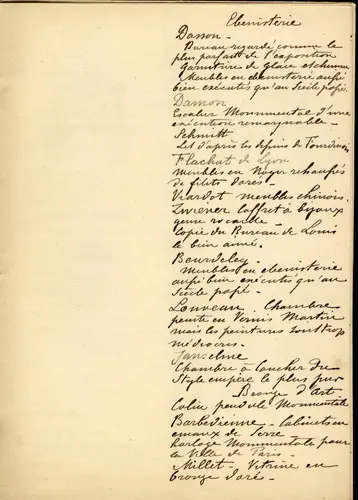 Ebenisterie
Dasson -
Bureau regardé comme le
plus parfait de l'exposition
Garniture de glace et chemin
Meubles en ebenisterie aussi
bien exécutés qu'au Siècle passé.
Damon
Escalier Monumental d'une
exécution remarquable -
Schmitt
Lit d'après les dessins de
Flachat de Lyon
Meubles en rehaussés
de filets dorés -
Viardot meubles chinois.
Zwiener Coffret à bijoux
genre rocaille -
Copie du Bureau de Louis
le bien aimé.
Beurdeley -
Meubles en ebenisterie
aussi bien exécutés qu'au
Siècle passé -
Louveau - Chambre
peinte en Vernis Martin
mais les peintures sont trop
médiocres.
Janselme
Chambre à coucher du
Style empire le plus pur
Bronze d'Art
Colin pendule Monumentale
Barbedienne - Cabinets en
emaux de Serre
Horloge Monumentale pour
la Ville de Paris -
Millet - Vitrine en
bronze doré -